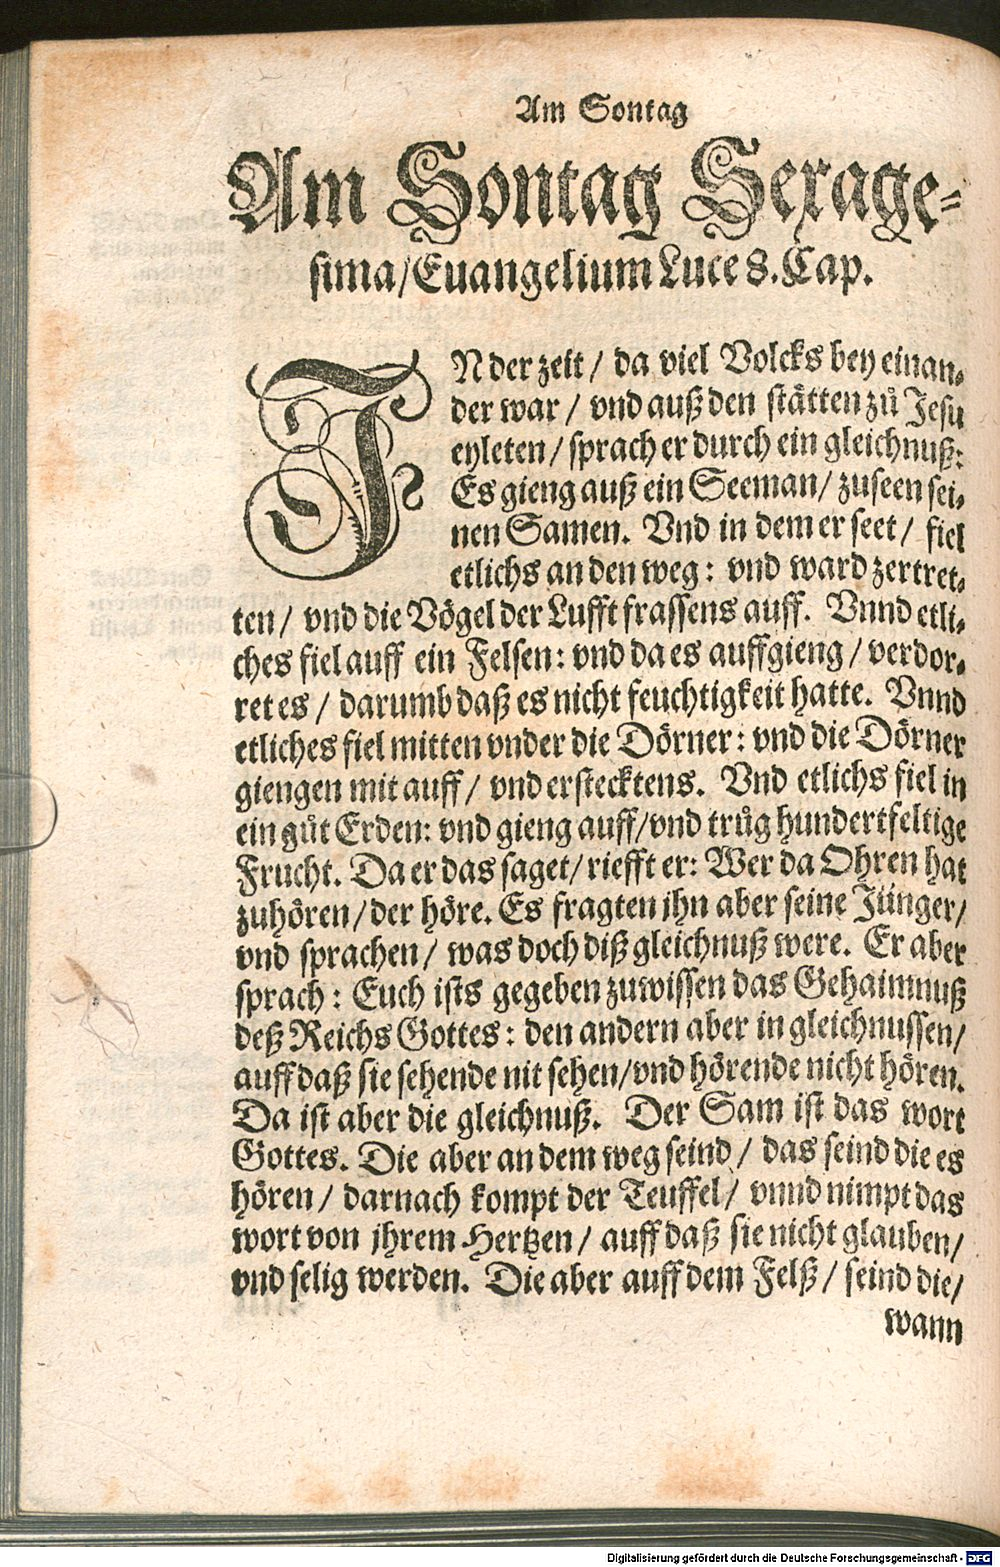 Am Sontag
Am Sontag Sexage-
sima/Euangelium Luce 8. Cap.
IN der zeit / da viel Volcks bey einan-
der war / vnd auß den stätten zů Jesu
eyleten / sprach er durch ein gleichnuß:
Es gieng auß ein Seeman / zuseen sei-
nen Samen. Vnd in dem er seet / fiel
etlichs an den weg: vnd ward zertret-
ten / vnd die Vögel der Lufft frassens auff. Vnnd etli-
ches fiel auff ein Felsen: vnd da es auffgieng / verdor-
ret es / darumb daß es nicht feuchtigkeit hatte. Vnnd
etliches fiel mitten vnder die Dörner: vnd die Dörner
giengen mit auff / vnd erstecktens. Vnd etlichs fiel in
ein gůt Erden: vnd gieng auff/vnd trůg hundertfeltige
Frucht. Da er das saget / riefft er: Wer da Ohren hat
zuhören / der höre. Es fragten jhn aber seine Jünger/
vnd sprachen / was doch diß gleichnuß were. Er aber
sprach: Euch ists gegeben zuwissen das Gehaimnuß
deß Reichs Gottes: den andern aber in gleichnussen/
auff daß sie sehende nit sehen/vnd hörende nicht hören.
Da ist aber die gleichnuß. Der Sam ist das wort
Gottes. Die aber an dem weg seind / das seind die es
hören / darnach kompt der Teuffel / vnnd nimpt das
wort von jhrem Hertzen / auff daß sie nicht glauben/
vnd selig werden. Die aber auff dem Felß / seind die/
wann
Digitalisierung gefördert durch die Deutsche Forschungsgemeinschaft - DFG